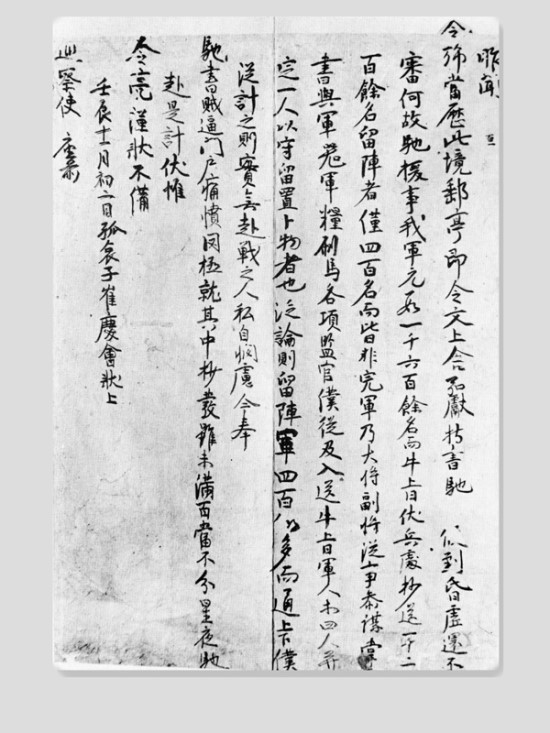 昨聞
令旆當歷此境郵亭卽令文上舍弘獻持書馳 到昏虛還不
審何故馳援事我軍元數一千六百餘名而牛上日伏兵處抄送一千二
百餘名留陣者僅四百名而此日非完軍乃大將副將從事參謀掌
書與軍器軍糧刷馬各項監官僕從及入送牛上日軍人等四人并
定一人以守留置卜物者也泛論則留陣軍四百似多而通卞僕
從計之則實無赴戰之人私自悶慮今奉
馳書賊逼門戶痛憤罔極就其中抄發雖未滿百當不分星夜馳
赴是計伏惟
令亮謹狀不備
壬辰十一月初二日孤哀子崔慶會狀上
巡察使